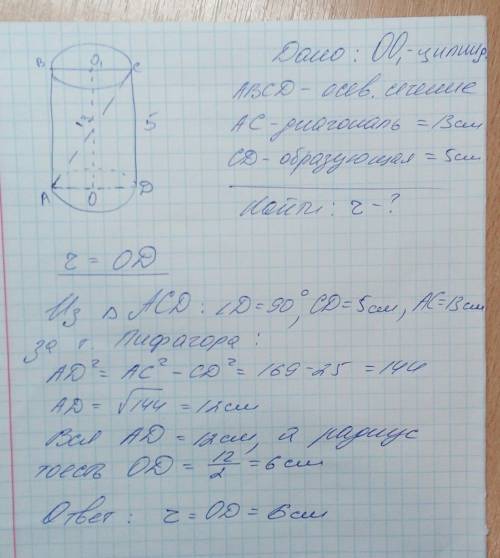 Дано: OO₁ - цилинд.
ABCD - осев. сечение
AC - диагональ = 13 см
CD - образующая = 5 см
Найти: r - ?
B O₁ C
5
A O D
r = OD
Из △ ACD: ∠D = 90°, CD = 5 см, AC = 13 см
за т. Пифагора:
AD² = AC² - CD² = 169 - 25 = 144
AD = √144 = 12 см
Вся AD = 12 см, а радиус
тоесть OD = 12/2 = 6 см
Ответ: r = OD = 6 см